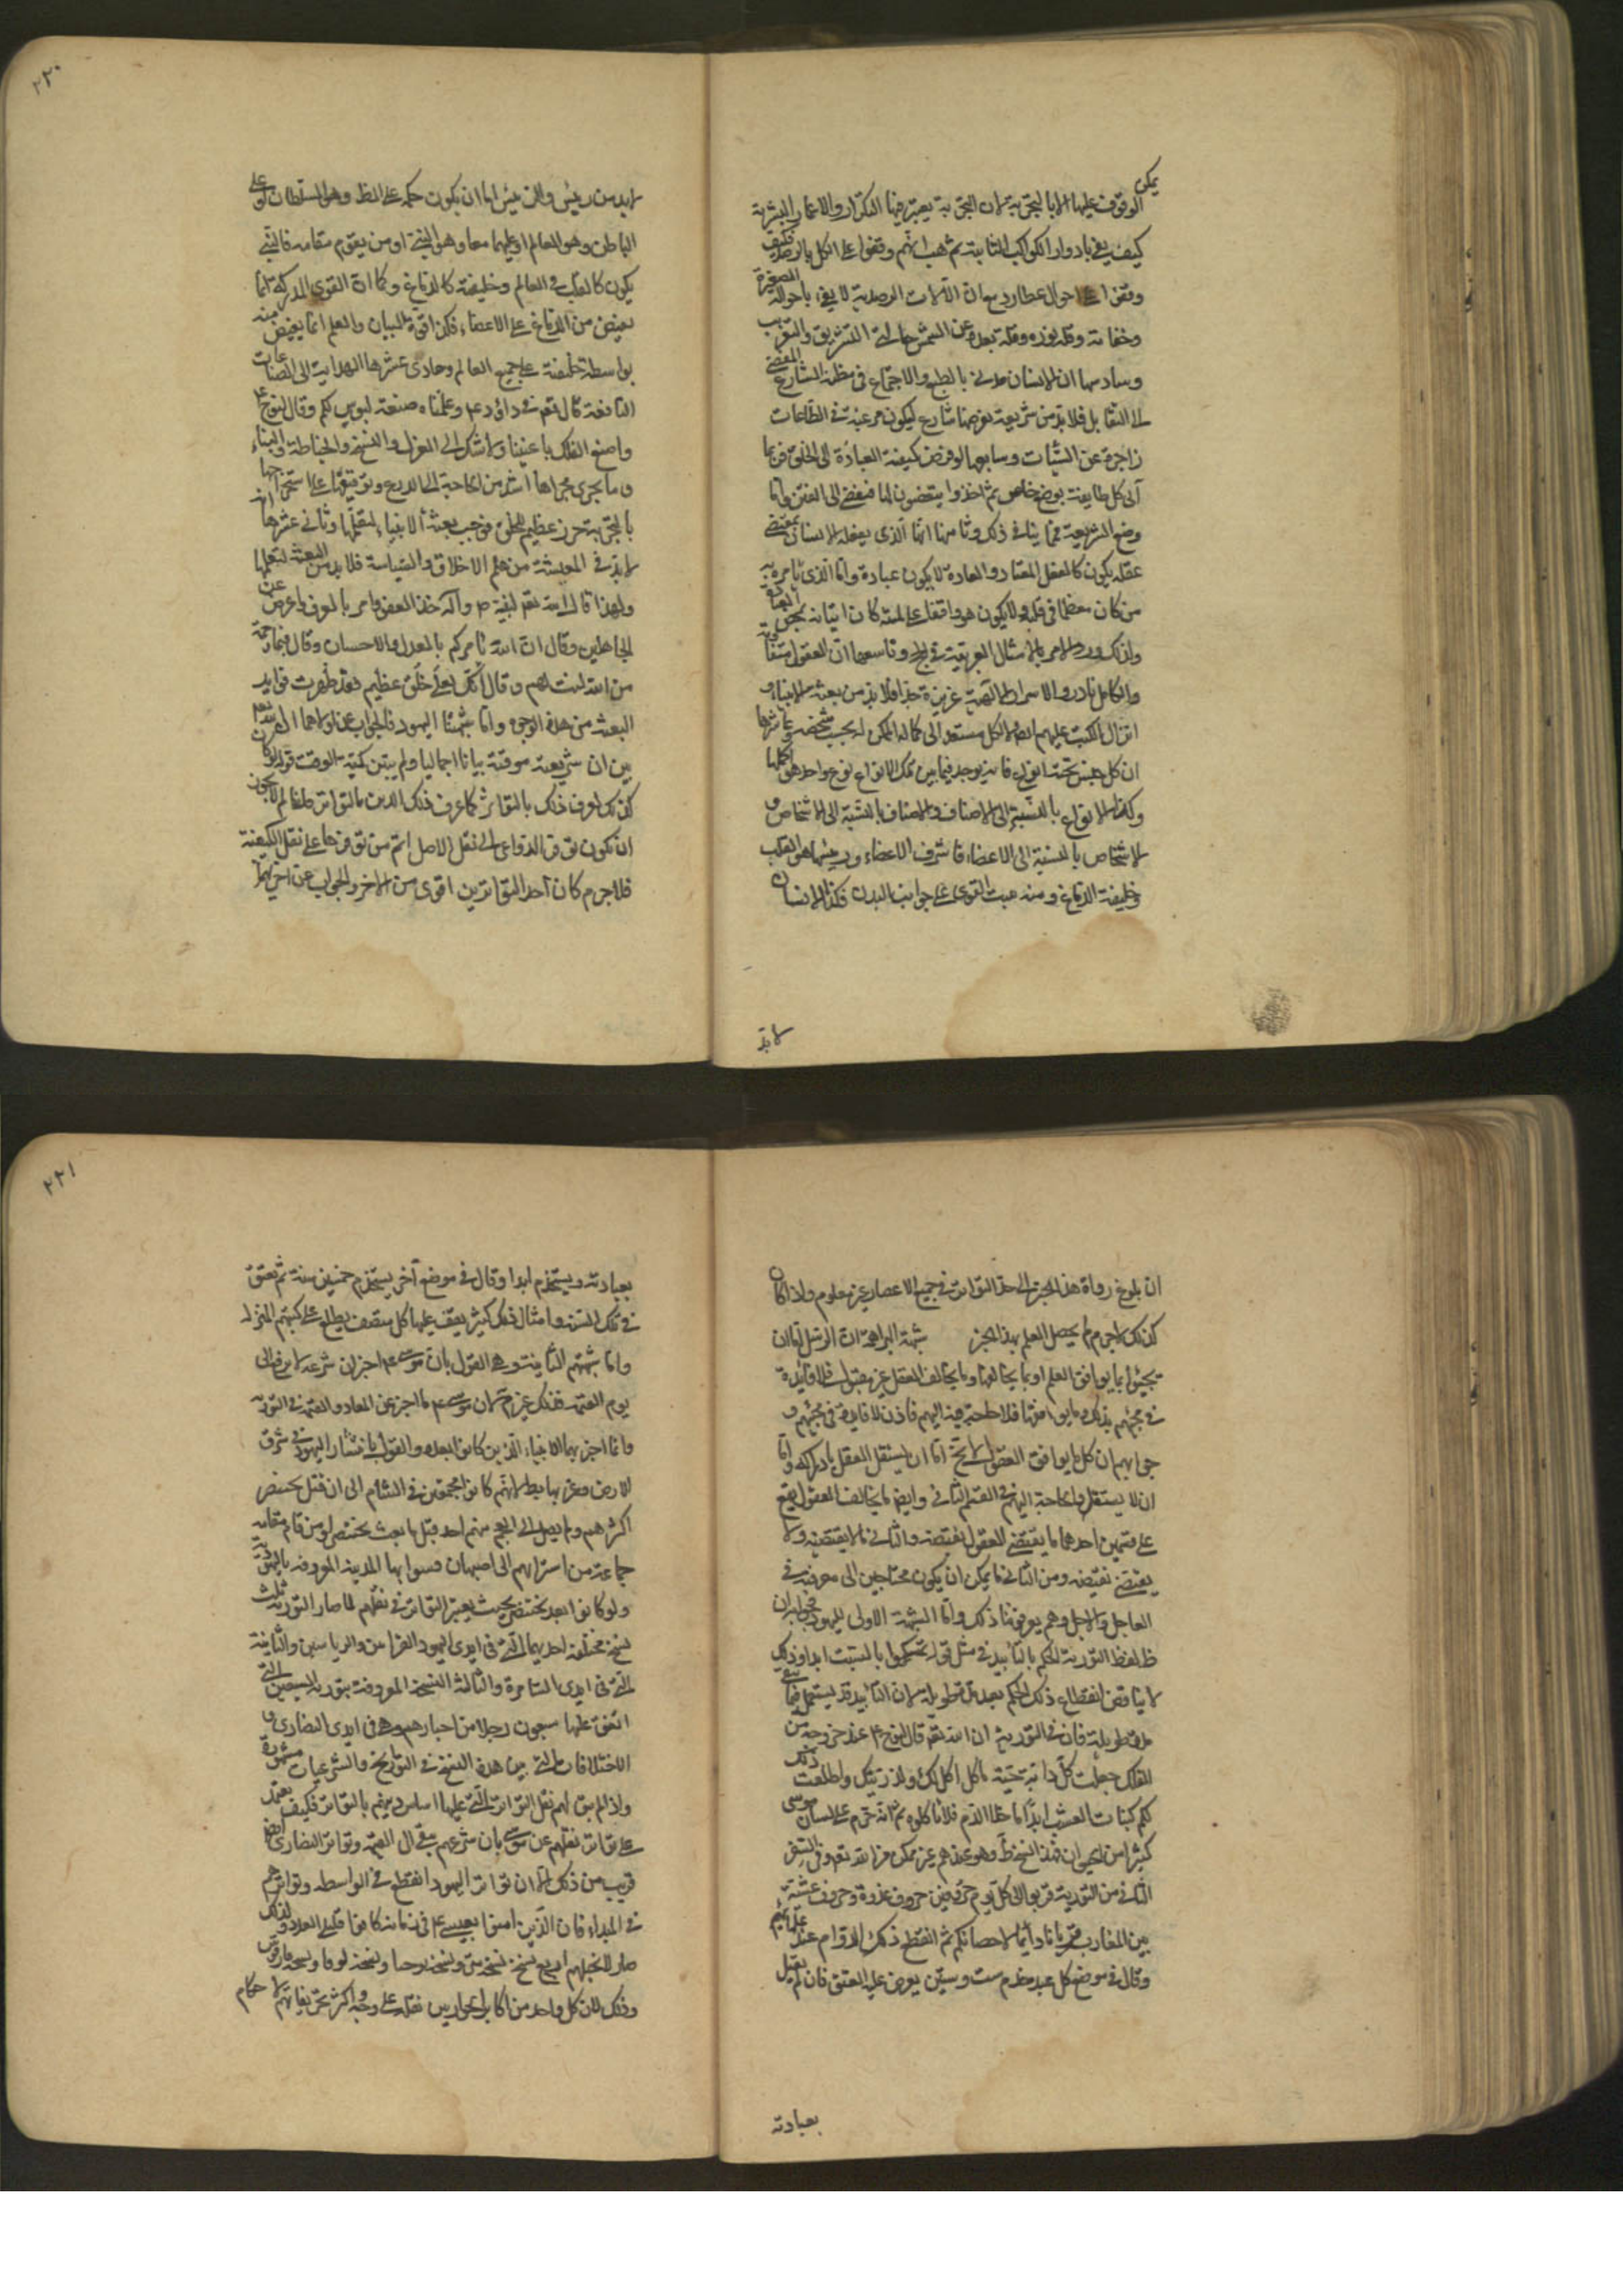 يمكن
الوقوف عليها الا بالتجربة لان التجربة يعتبر فيها التكرار والاعمار البشرية
كيف يفي بادوار الكواكب الثابتة ثم هب انهم وقفوا على الكل بالرصد فكيف
وقفوا على احوال عطارد مع ان الالات الرصدية لا يفي باحواله لصغره
وخفائه وقلة نوره وقلة بعده عن الشمس حالتي التشريق والتغريب
وسادسها ان الانسان مدني بالطبع والاجتماع في مظنة التنازع المفضي
الى التقاتل فلا بد من شريعة يفرضها شارع ليكون مرغبة في الطاعات
زاجرة عن السيئات وسابعها لو فوض كيفية العبادة الى الخلق فربما
اتى كل طايفة بوضع خاص ثم اخذوا يتعصبون لها فيفضي الى الفتن واما
وضع الشريعة فمما ينافي ذلك وثامنها ان الذي يفعله الانسان بمقتضى
عقله يكون كالفعل المعتاد والعادة لا يكون عبادة واما الذي يامره به
من كان معظما في قلبه ولا يكون هو واقفا على لميته كان اتيانه به محض العبادة
ولذلك ورد الامر بالامثال الغريبة في الحج وتاسعها ان العقول متفاوتة
والكامل نادر والاسرار الالهية عزيزة جدا فلا بد من بعثة الانبياء و
انزال الكتب عليهم ايصالا لكل مستعد الى كماله الممكن له بحسب شخصه وعاشرها
ان كل جنس تحته انواع فانه يوجد فيما بين تلك الانواع نوع واحد هو اكملها
وكذا الانواع بالنسبة الى الاصناف والاصناف بالنسبة الى الاشخاص و
الاشخاص بالنسبة الى الاعضاء فاشرف الاعضاء ورييسها هو القلب
وخليفته الدماغ ومنه تنبث القوى على جوانب البدن فكذا الانسان
لابد
٢٢٠
لابد من رييس والرييس اما ان يكون حكمه على الظ وهو السلطان او على
الباطن وهو العالم او عليهما معا وهو النبي او من يقوم مقامه فالنبي
يكون كالقلب في العالم وخليفته كالدماغ وكما ان القوى المدركة انما
يفيض من الدماغ على الاعضاء فكذا قوة البيان والعلم انما يفيض منه
بواسطة خليفته على جميع العالم وحادي عشرها الهداية الى الصناعات
النافعة قال تعم في داود ع م وعلمناه صنعة لبوس لكم وقال لنوح ع
واصنع الفلك باعيننا ولا شك الى الغزل والنسج والخياطة والبناء
وما يجري مجراها اشد من الحاجة الى الدرع وتوقيفها على استخراجها
بالتجربة ضرر عظيم للخلق فوجب بعثة الانبياء لتعليمها وثاني عشرها انه
لابد في المعيشة من علم الاخلاق والسياسة فلا بد من البعثة لتعلمها
ولهذا قال الله تعم لنبيه ص وآله خذ العفو وامر بالعرف واعرض عن
الجاهلين وقال ان الله يامركم بالعدل والاحسان وقال فبما رحمة
من الله لنت لهم وقال انك لعلى خلق عظيم فقد ظهرت فوايد
البعثة من هذه الوجوه واما شبهتا اليهود فالجواب عن اولاهما ان الله تعم
بين ان شريعته موقتة بيانا اجماليا ولم يبين كمية الوقت قوله لو كان
كذلك لعرف ذلك بالتواتر كما عرف ذلك الدين بالتواتر قلنا لم لا يجوز
ان يكون توفر الدواعي الى نقل الاصل اتم من توفرها على نقل الكيفية
فلاجرم كان احد المتواترين اقوى من الاخر والجواب عن اخريهما
ان بلوغ رواة هذا الخبر الى حد التواتر في جميع الاعصار غير معلوم واذا كان
كذلك لاجرم لم يحصل العلم بهذا الخبر شبهة البراهمة ان الرسل اما ان
يجيئوا بما يوافق العلم او بما يخالفه وما يخالف العقل غير مقبول فلا فايدة
في مجيئهم بذلك وما يوافقها فلا حاجة فيه اليهم فاذن لا فايدة في مجيئهم و
جوابهم ان كل ما يوافق العقول لا يخ اما ان يستقل العقل بادراكه واما
ان لا يستقل والحاجة اليهم في القسم الثاني وايضا ما يخالف العقول يقع
على قسمين احدهما ما يقتضي العقول نقيضه والثاني ما لا يقتضيه ولا
يقتضي نقيضه ومن الثاني ما يمكن ان يكون محتاجين الى معرفته في
العاجل والاجل وهم يعرفوننا ذلك واما الشبهة الاولى لليهود فجوابه ان
ظ لفظ التورية الحكم بالتابيد في مثل قوله تمسكوا بالسبت ابدا وذلك
لا يناقض انقطاع ذلك الحكم بعد مدة طويلة لان التابيد قد يستعمل فيما يبقى
مدة طويلة فان في التورية ان الله تعم قال لنوح ع م عند خروجه من
الفلك جعلت كل دابة حية ماكل اكل لك ولذريتك واطلقت ذلك
لكم كنبات العشب ابدا ما خلا الدم فلا تاكلوه ثم انه حرم على لسان موسى
كثيرا من الحيوان فهذا النسخ وهو عندهم غير ممكن من الله تعم وفي السفر
الثاني من التورية قربوا الي كل يوم خروفين خروف غدوة وخروف عشية
بين المغارب قربانا دايما لاحقابكم ثم انقطع ذلك الدوام عندهم
وقال في موضع كل عبد خدم ست سنين يعرض عليه العتق فان لم يقبل
بعبادته
٢٢١
بعبادته ويستخدم ابدا وقال في موضع آخر يستخدم خمسين سنة ثم يعتق
في تلك السنة وامثال ذلك كثير يقف عليها كل منصف يطلع على كتبهم المنزلة
واما شبهتهم الثانية وهي القول بان موسى ع م اخبر ان شرعه لا يرفع الى
يوم القيمة فذلك غير لان موسى ع م ما اخبر عن المعاد والقيمة في التورية
وانما اخبر بها الانبياء الذين كانوا بعده والقول بانتشار اليهود في شرق
الارض وغربها باطل لانهم كانوا مجتمعين في الشام الى ان قتل بختنصر
اكثرهم ولم يصل الى العجم منهم احد قبل ما بعث بختنصر او من قام مقامه
جماعة من اسرائهم الى اصبهان فسموا بها المدينة المعروفة باليهودية
ولو كانوا بعد بختنصر بحيث يعتبر التواتر في نقلهم لما صار التورية ثلث
نسخ مختلفة احديها التي في ايدي اليهود القرائين والربانيين والثانية
التي في ايدي السامرة والثالثة النسخة المعروفة بتورية السبعين التي
اتفق عليها سبعون رجلا من احبارهم وهي في ايدي النصارى و
الاختلافات التي بين هذه النسخ في التواريخ والشرعيات مشهورة
واذا لم يبق لهم نقل التواتر التي عليها اساس دينهم بالتواتر فكيف يعتمد
على تواتر نقلهم عن موسى بان شرعهم يبقى الى القيمة وتواتر النصارى ايضا
قريب من ذلك الا ان تواتر اليهود انقطع في الواسطة وتواترهم
في المبداء فان الذين امنوا بعيسى ع في زمانه كانوا قليلي العدد ولذلك
صار الانجيل اربع نسخ نسخة متى ونسخة يوحنا ونسخة لوقا ونسخة مارقوس
وذلك لان كل واحد من اكابر الحواريين نقله على وجه واكثر تحريفاتهم الاحكام